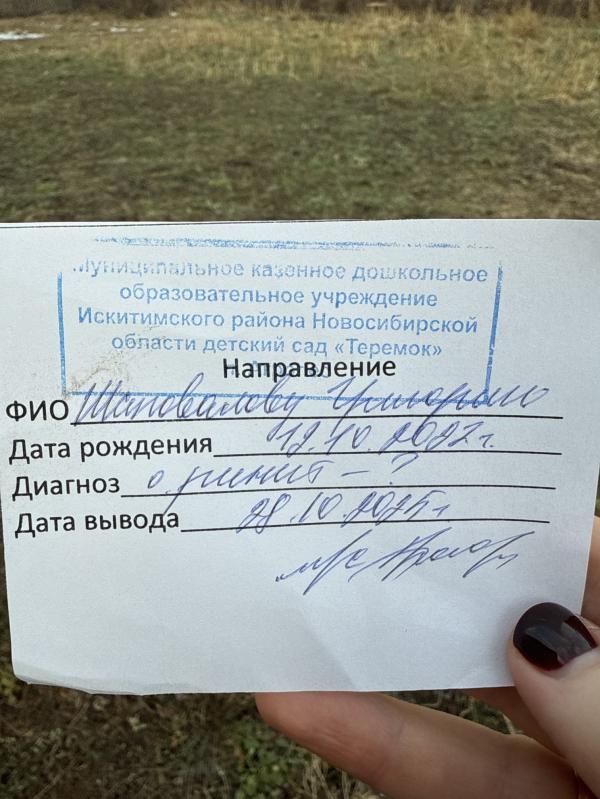 Муниципальное казенное дошкольное
образовательное учреждение
Искитимского района Новосибирской
области детский сад «Теремок»
Направление
ФИО Шаповалову Григорию
Дата рождения 12.10.2022 г.
Диагноз о. ринит - ?
Дата вывода 28.10.2025 г
м/с